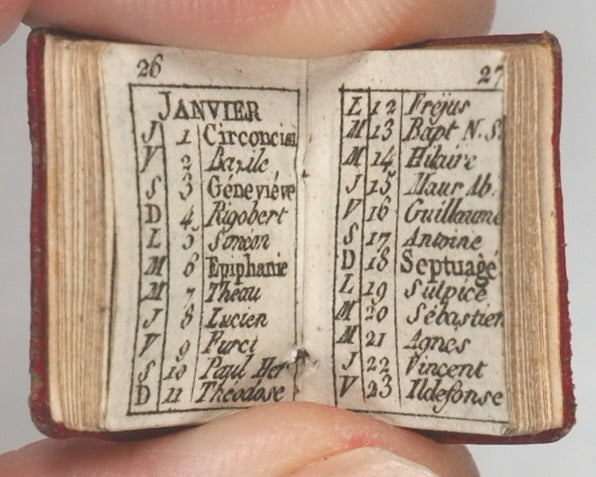 26
JANVIER
J 1 Circoncisi
V 2 Bazile
S 3 Géneviéve
D 4 Rigobert
L 5 Siméon
M 6 Epiphanie
M 7 Théau
J 8 Lucien
V 9 Furci
S 10 Paul Her
D 11 Théodose
27
L 12 Fréjus
M 13 Bapt N.S.
M 14 Hilaire
J 15 Maur Ab.
V 16 Guillaume
S 17 Antoine
D 18 Septuagé
L 19 Sulpice
M 20 Sébastien
M 21 Agnes
J 22 Vincent
V 23 Ildefonse